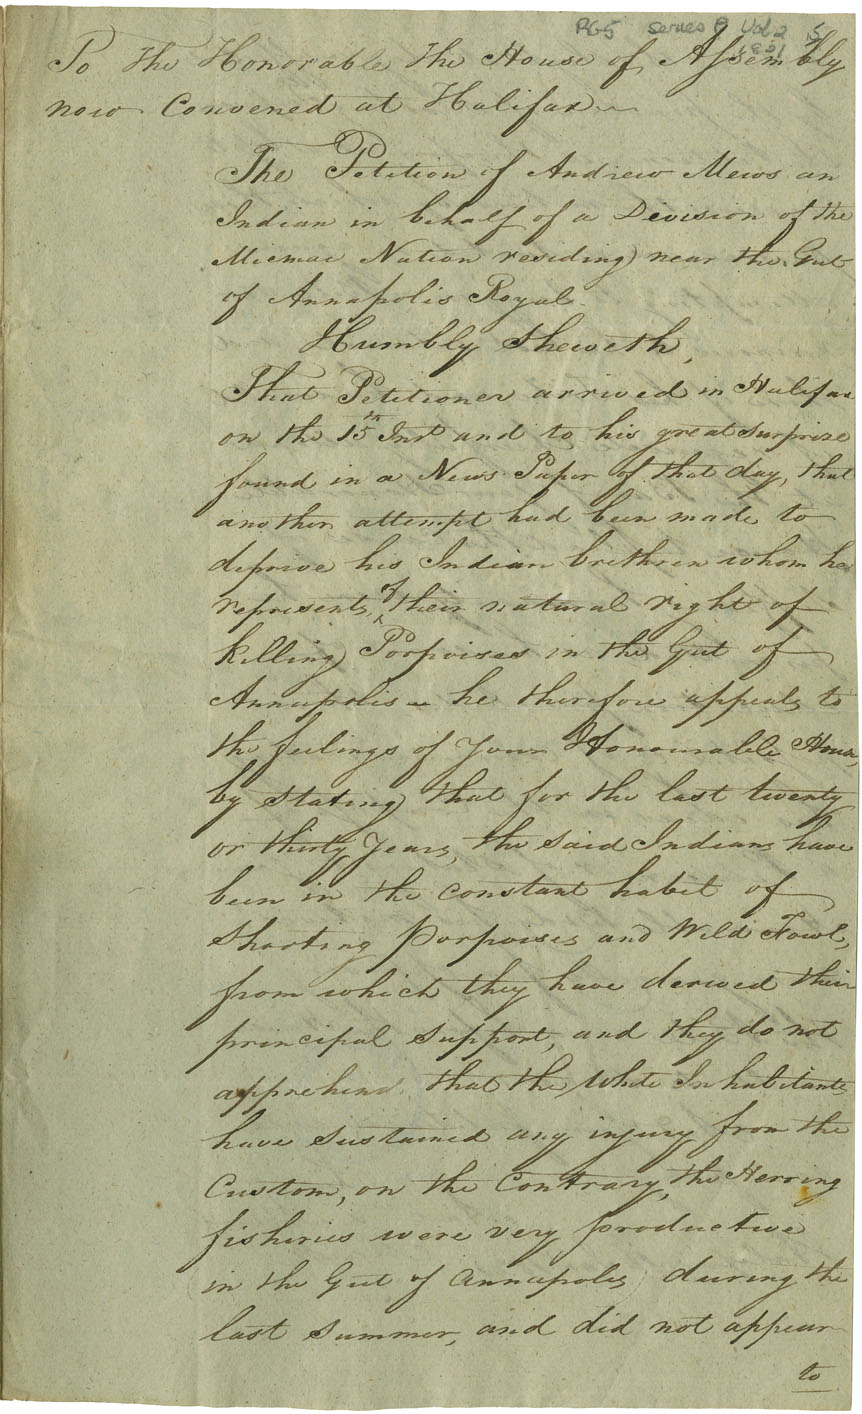 RG5 Series P Vol 2 5
1821
To the Honorable the House of Assembly
now Convened at Halifax
The Petition of Andrew Mews an
Indian in behalf of a Division of the
Micmac Nation residing near the Gut
of Annapolis Royal.
Humbly Sheweth,
That Petitioner arrived in Halifax
on the 15th Inst and to his great Surprize
found in a News Paper of that day, that
another attempt had been made to
deprive his Indian brethren whom he
represents, of their natural right of
killing Porpoises in the Gut of
Annapolis – he therefore appeals to
the feelings of Your Honourable House,
by stating that for the last twenty
or thirty Years, the said Indians have
been in the constant habit of
Shooting Porpoises and Wild Fowl,
from which they have derived their
principal Support, and they do not
apprehend that the White Inhabitants
have Sustained any injury from the
Custom, on the Contrary, the Herring
fisheries were very productive
in the Gut of Annapolis during the
last Summer, and did not appear
to